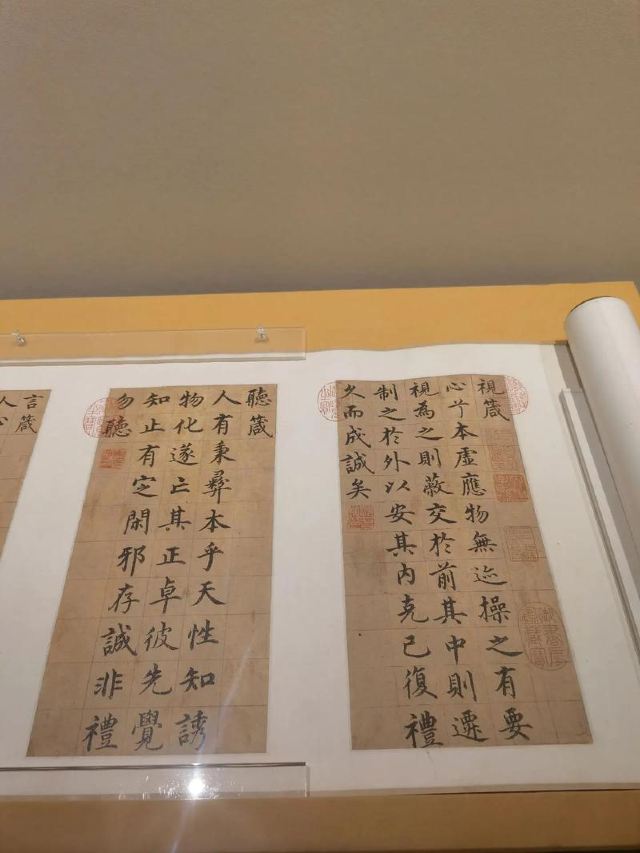 視箴
心兮本虛應物無迹操之有要
視為之則蔽交於前其中則遷
制之於外以安其内克己復禮
久而成誠矣
聽箴
人有秉彝本乎天性知誘
物化遂亡其正卓彼先覺
知止有定閑邪存誠非禮
勿聽
言箴
人